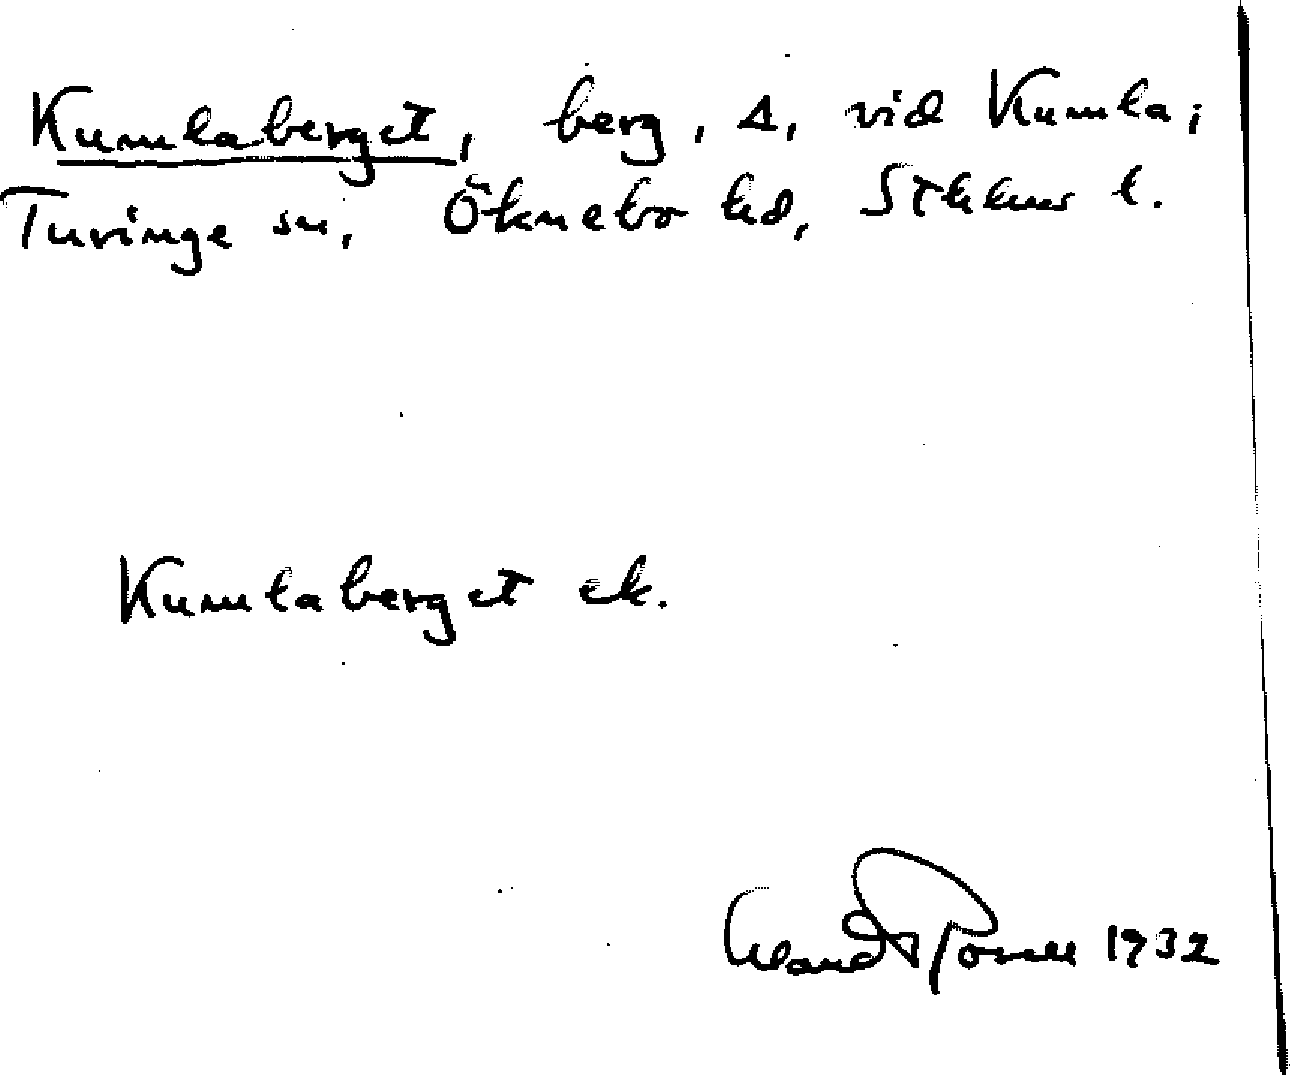 Kumlaberget, berg, Δ, vid Kumla,
Turinge sn, Öknebo hd, Sthlms l.
Kumlaberget ek.
1932